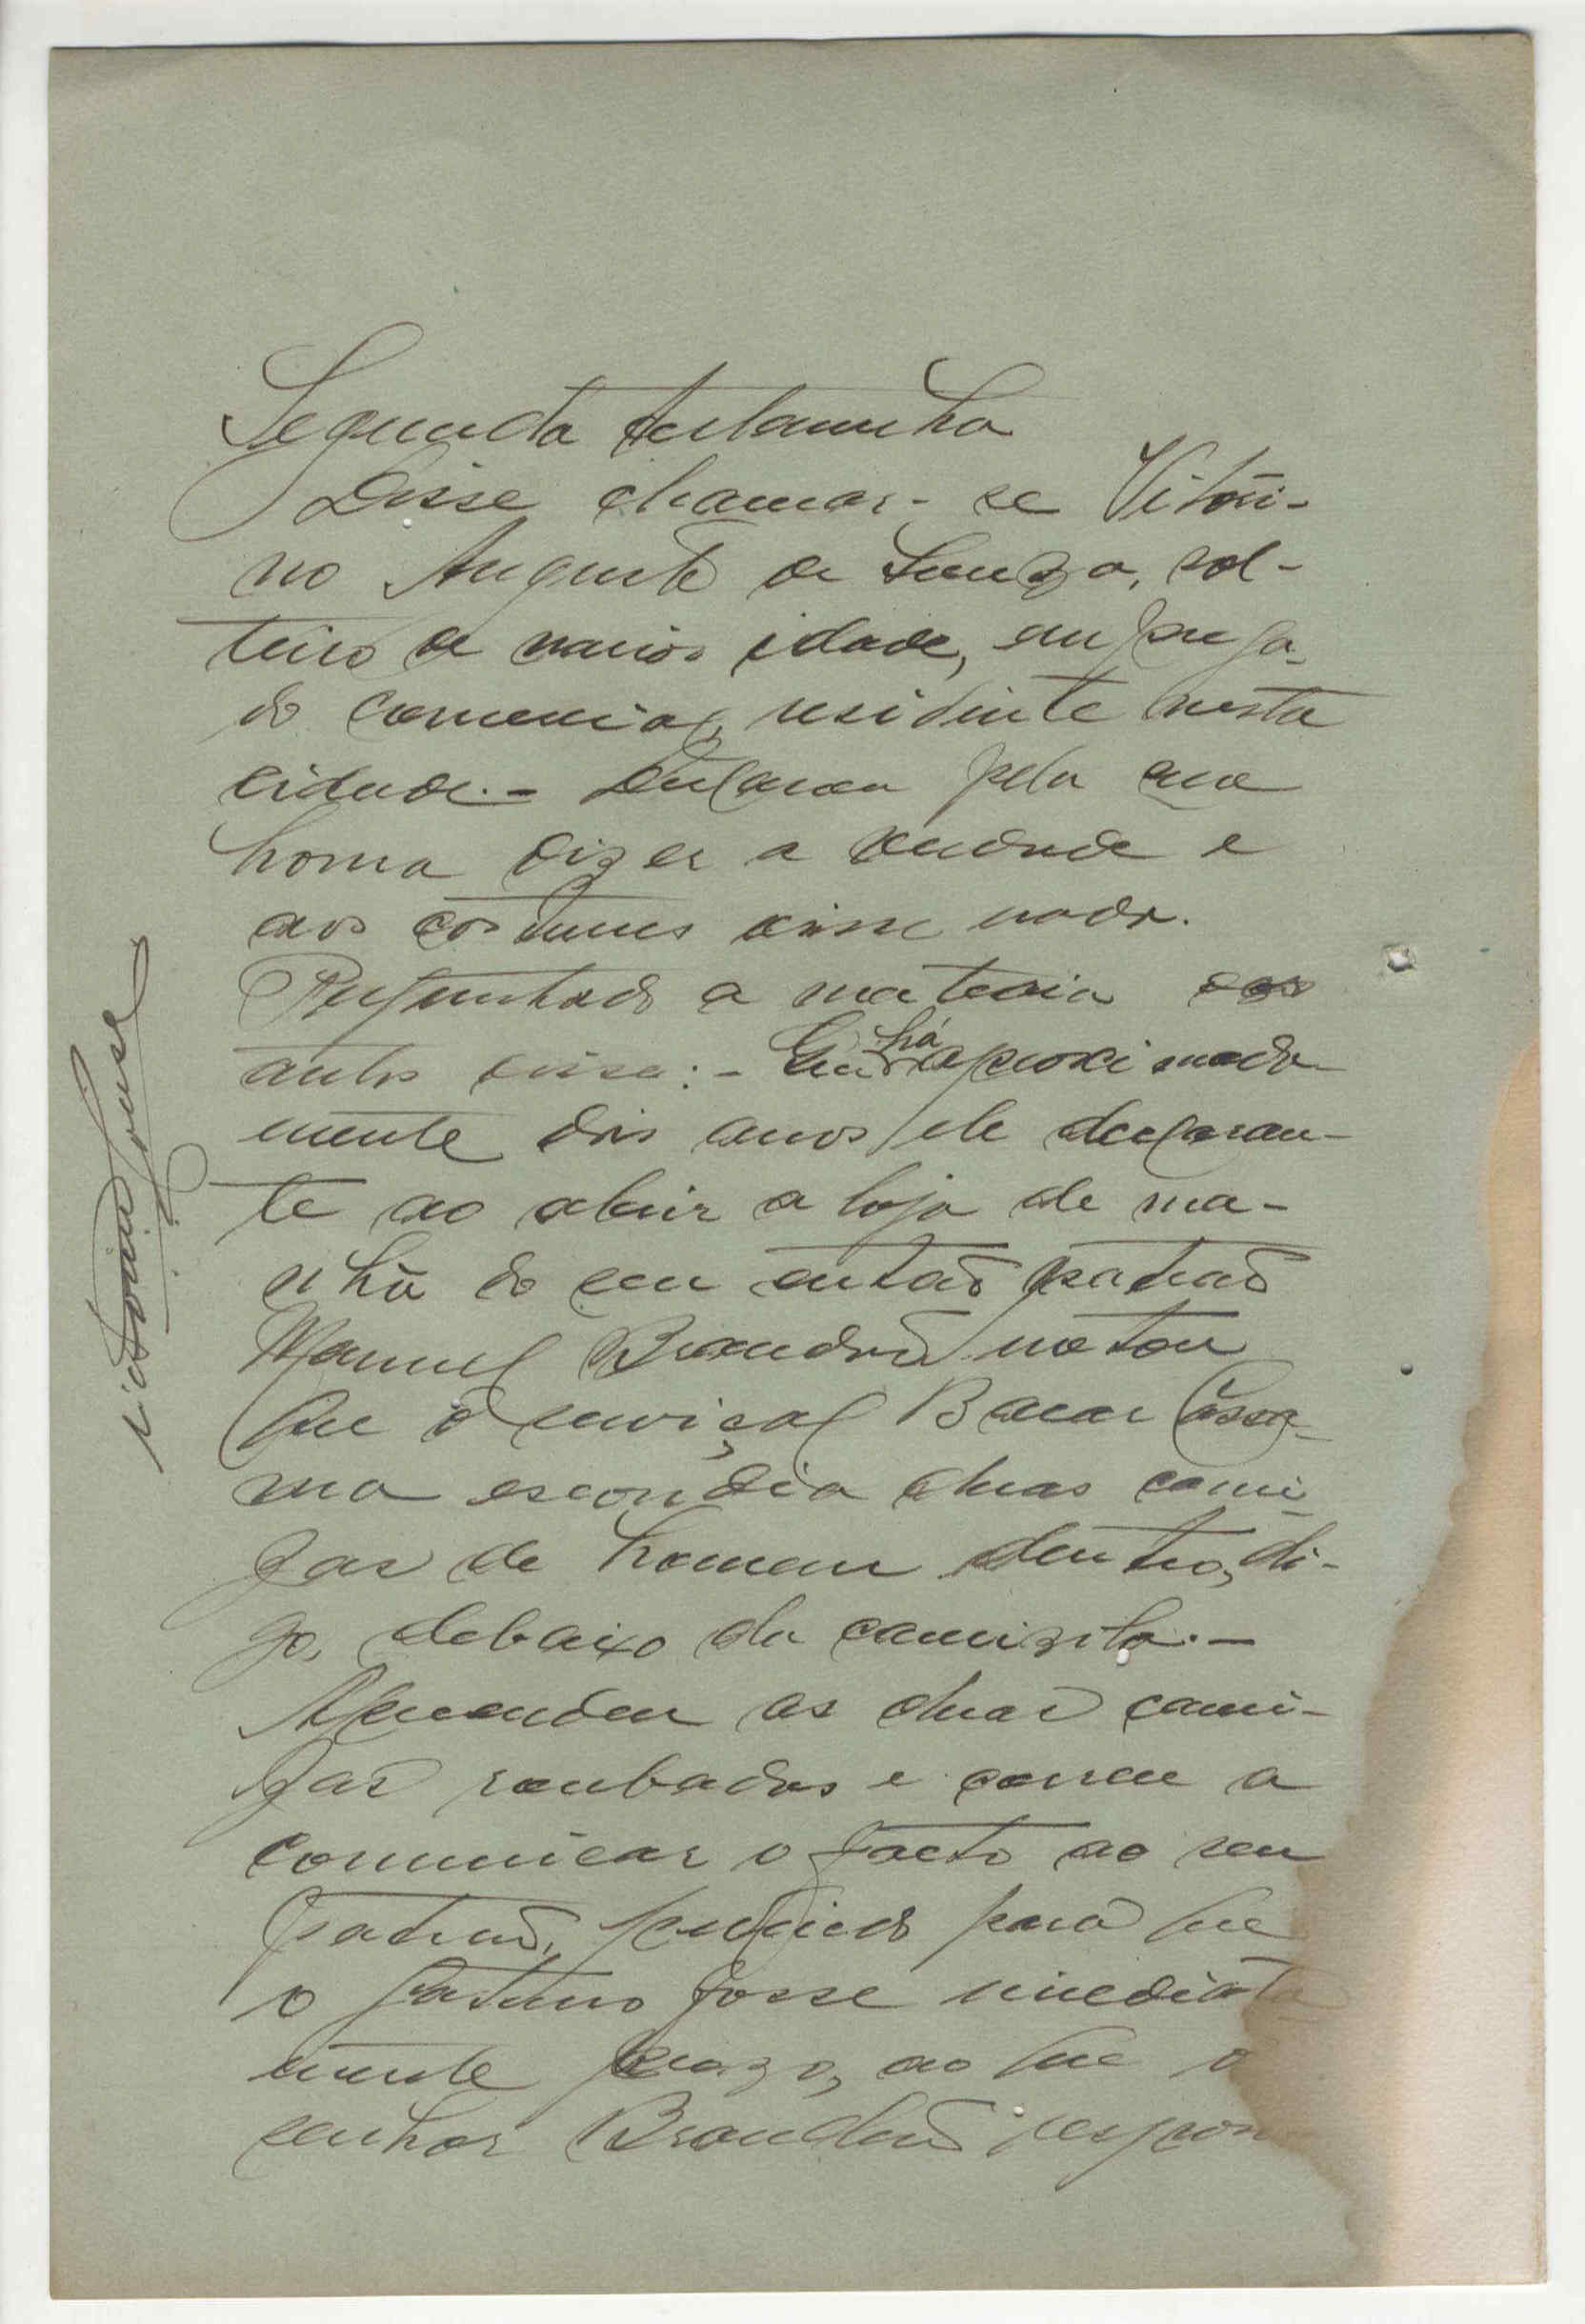 Segunda testemunha
Disse chamar-se Vitori-
no Augusto de Souza, sol-
teiro de maior idade, emprega-
do comercial, residente nesta
cidade.- Declarou pela sua
honra dizer a verdade e
aos costumes disse nada.
Perguntado a materia dos
autos disse:- Que há aproximada-
mente dois anos ele declaran-
te ao abrir a loja de ma-
nhã do seu então patrão
Manuel Brandão notou
que o serviçal Bacar Cassa-
ma escondia duas cami-
zas de homem dentro, di-
go, debaixo da camizola.-
Apreendeu as duas cami-
zas roubadas e correu a
comunicar o facto ao seu
patrão, pedindo para que
o gatuno fosse imediata
mente prezo, ao que o
senhor Brandão respon
Vitorino Souza